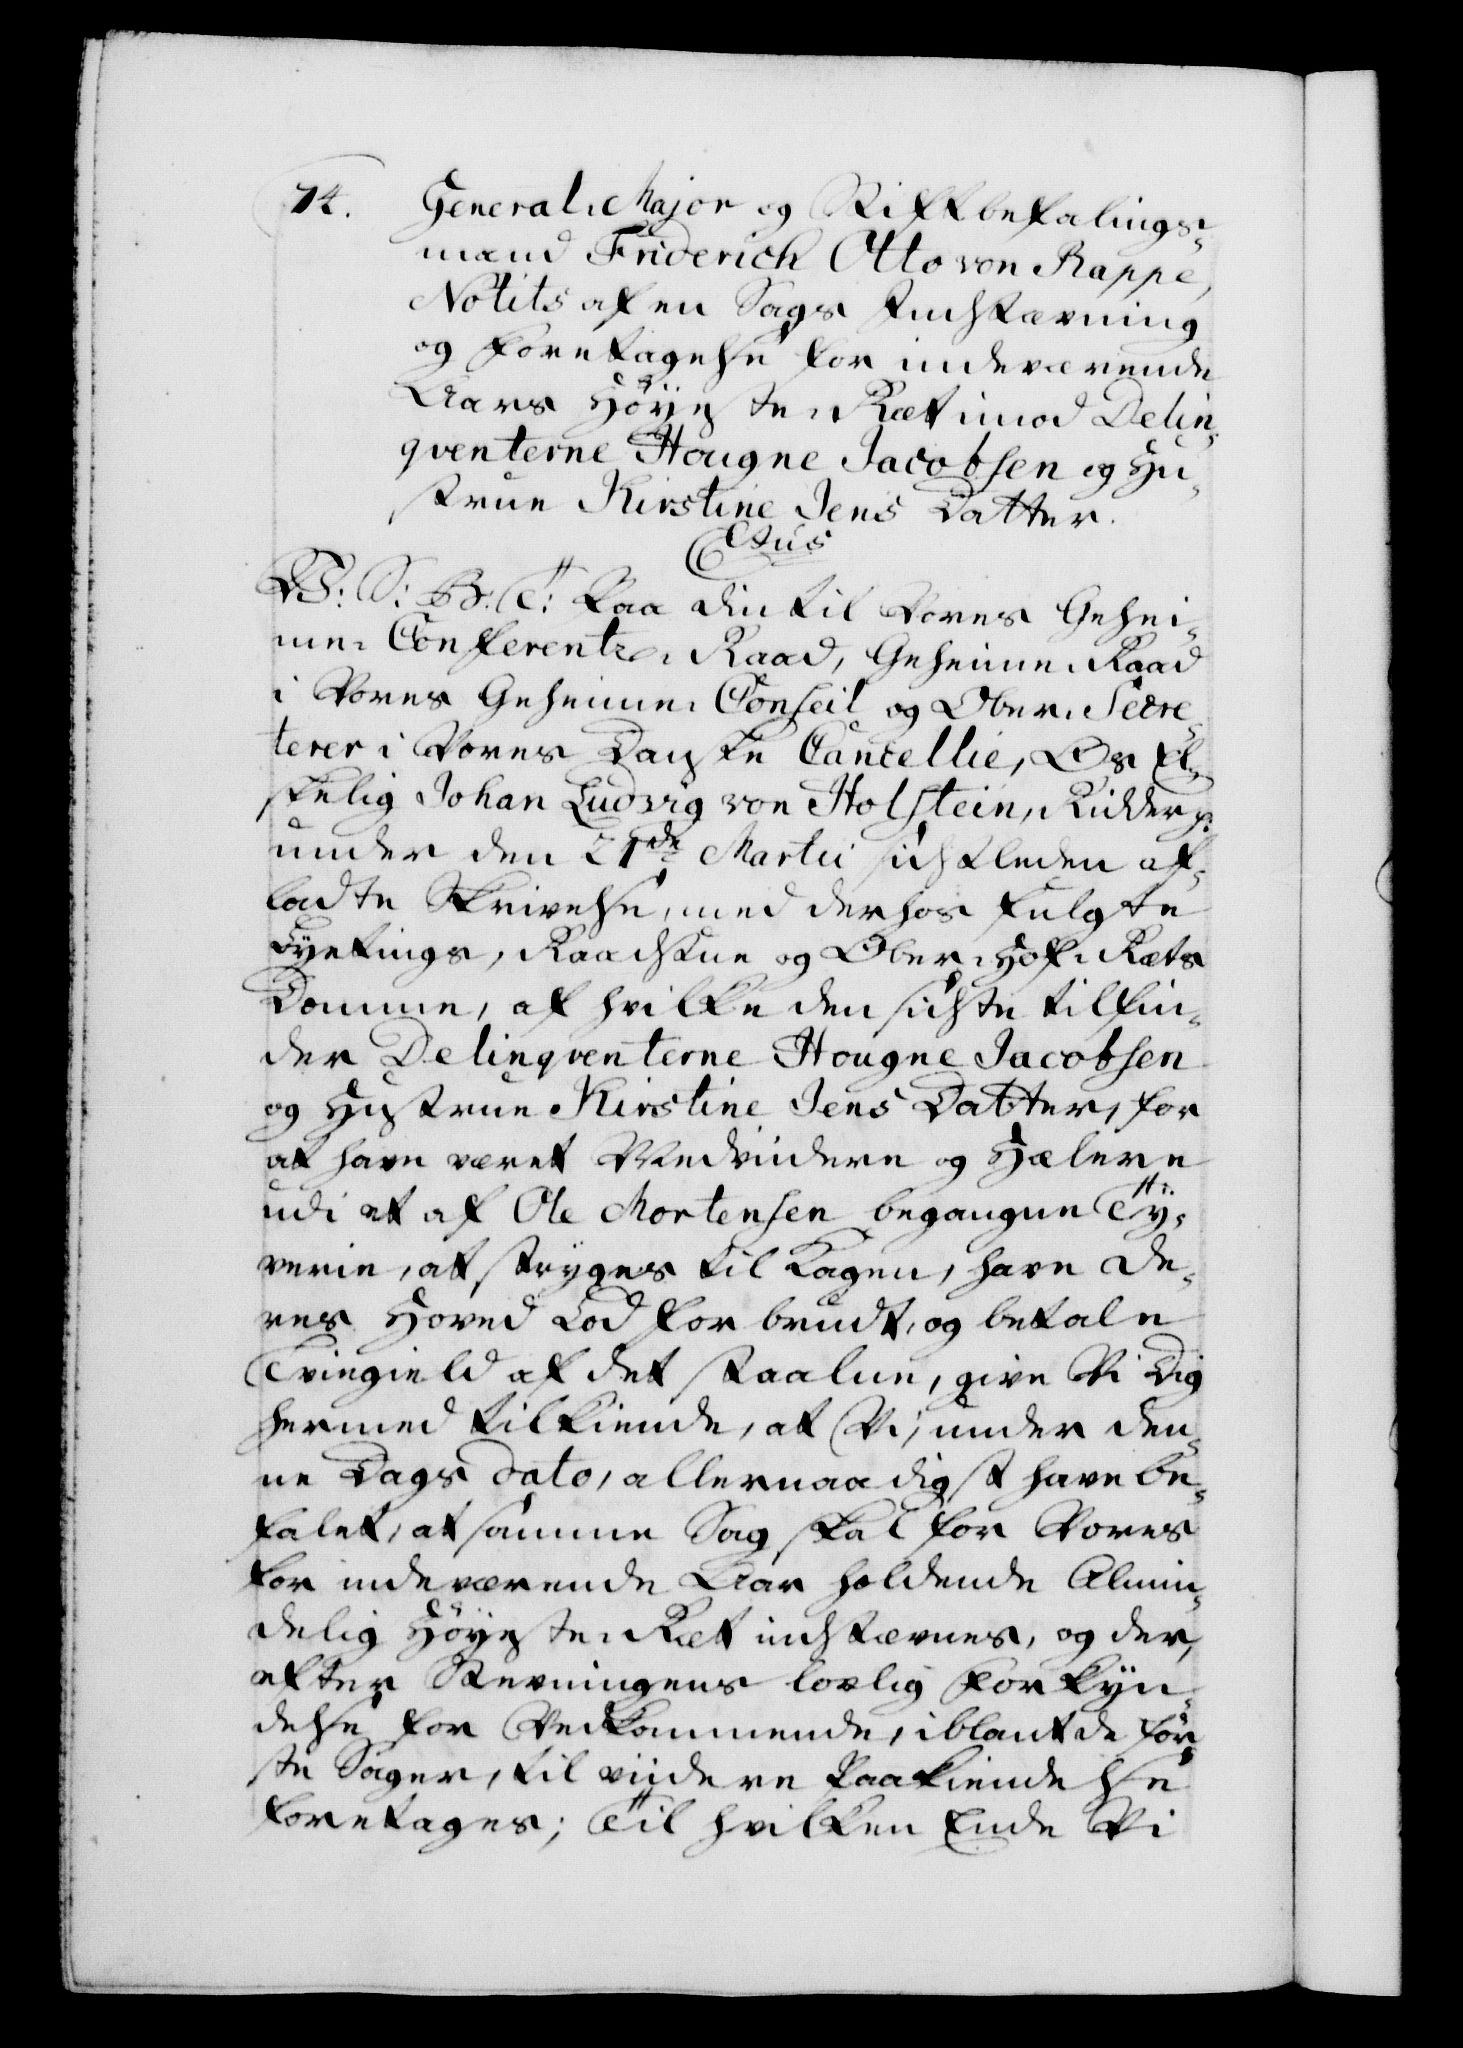 74. General-Major og Stiftbefalings-
mand Friderich Otto von Rappe,
Notits af en Sags Indstævning
og Foretagelse for indeværende
Aars Höyeste-Ræt imod Delin-
qventerne Hougne Jacobsen og Hu-
strue Kirstine Jens Datter.
C6tus
V: S: G: T: Paa din til Vores Gehei-
me-Conferentz-Raad, Geheime-Raad
i Vores Geheime-Conseil og Ober-Secre-
terer i Vores Danske Cancellie, Os El-
skelig Johan Ludvig von Holstein, Ridder p:
under den 21de Martii sidstleden af-
ladte Skrivelse, med derhos fulgte
Byetings, Raadstue og Ober-Hof-Rets
Domme, af hvilke den sidste tilfin-
der Delinqventerne Hougne Jacobsen
og Hustrue Kirstine Jens Datter, for
at have været Medvidere og Hælere
udi et af Ole Mortensen begangne Ty-
verie, at stryges til Kagen, have de-
res Hoved Lod forbrudt, og betale
Tviegield af det staalne, give Vi Dig
hermed tilkiende, at Vi, under den-
ne Dags dato, allernaadigst have be-
falet, at samme Sag skal for Vores
for indeværende Aar holdende Almin-
delig Höyeste-Ræt indstævnes, og der,
efter Stevningens lovlig Forkyn-
delse for Vedkommende, iblant deför-
ste Sager, til viidere Paakiendelse
foretages; Til hvilken Ende Vi